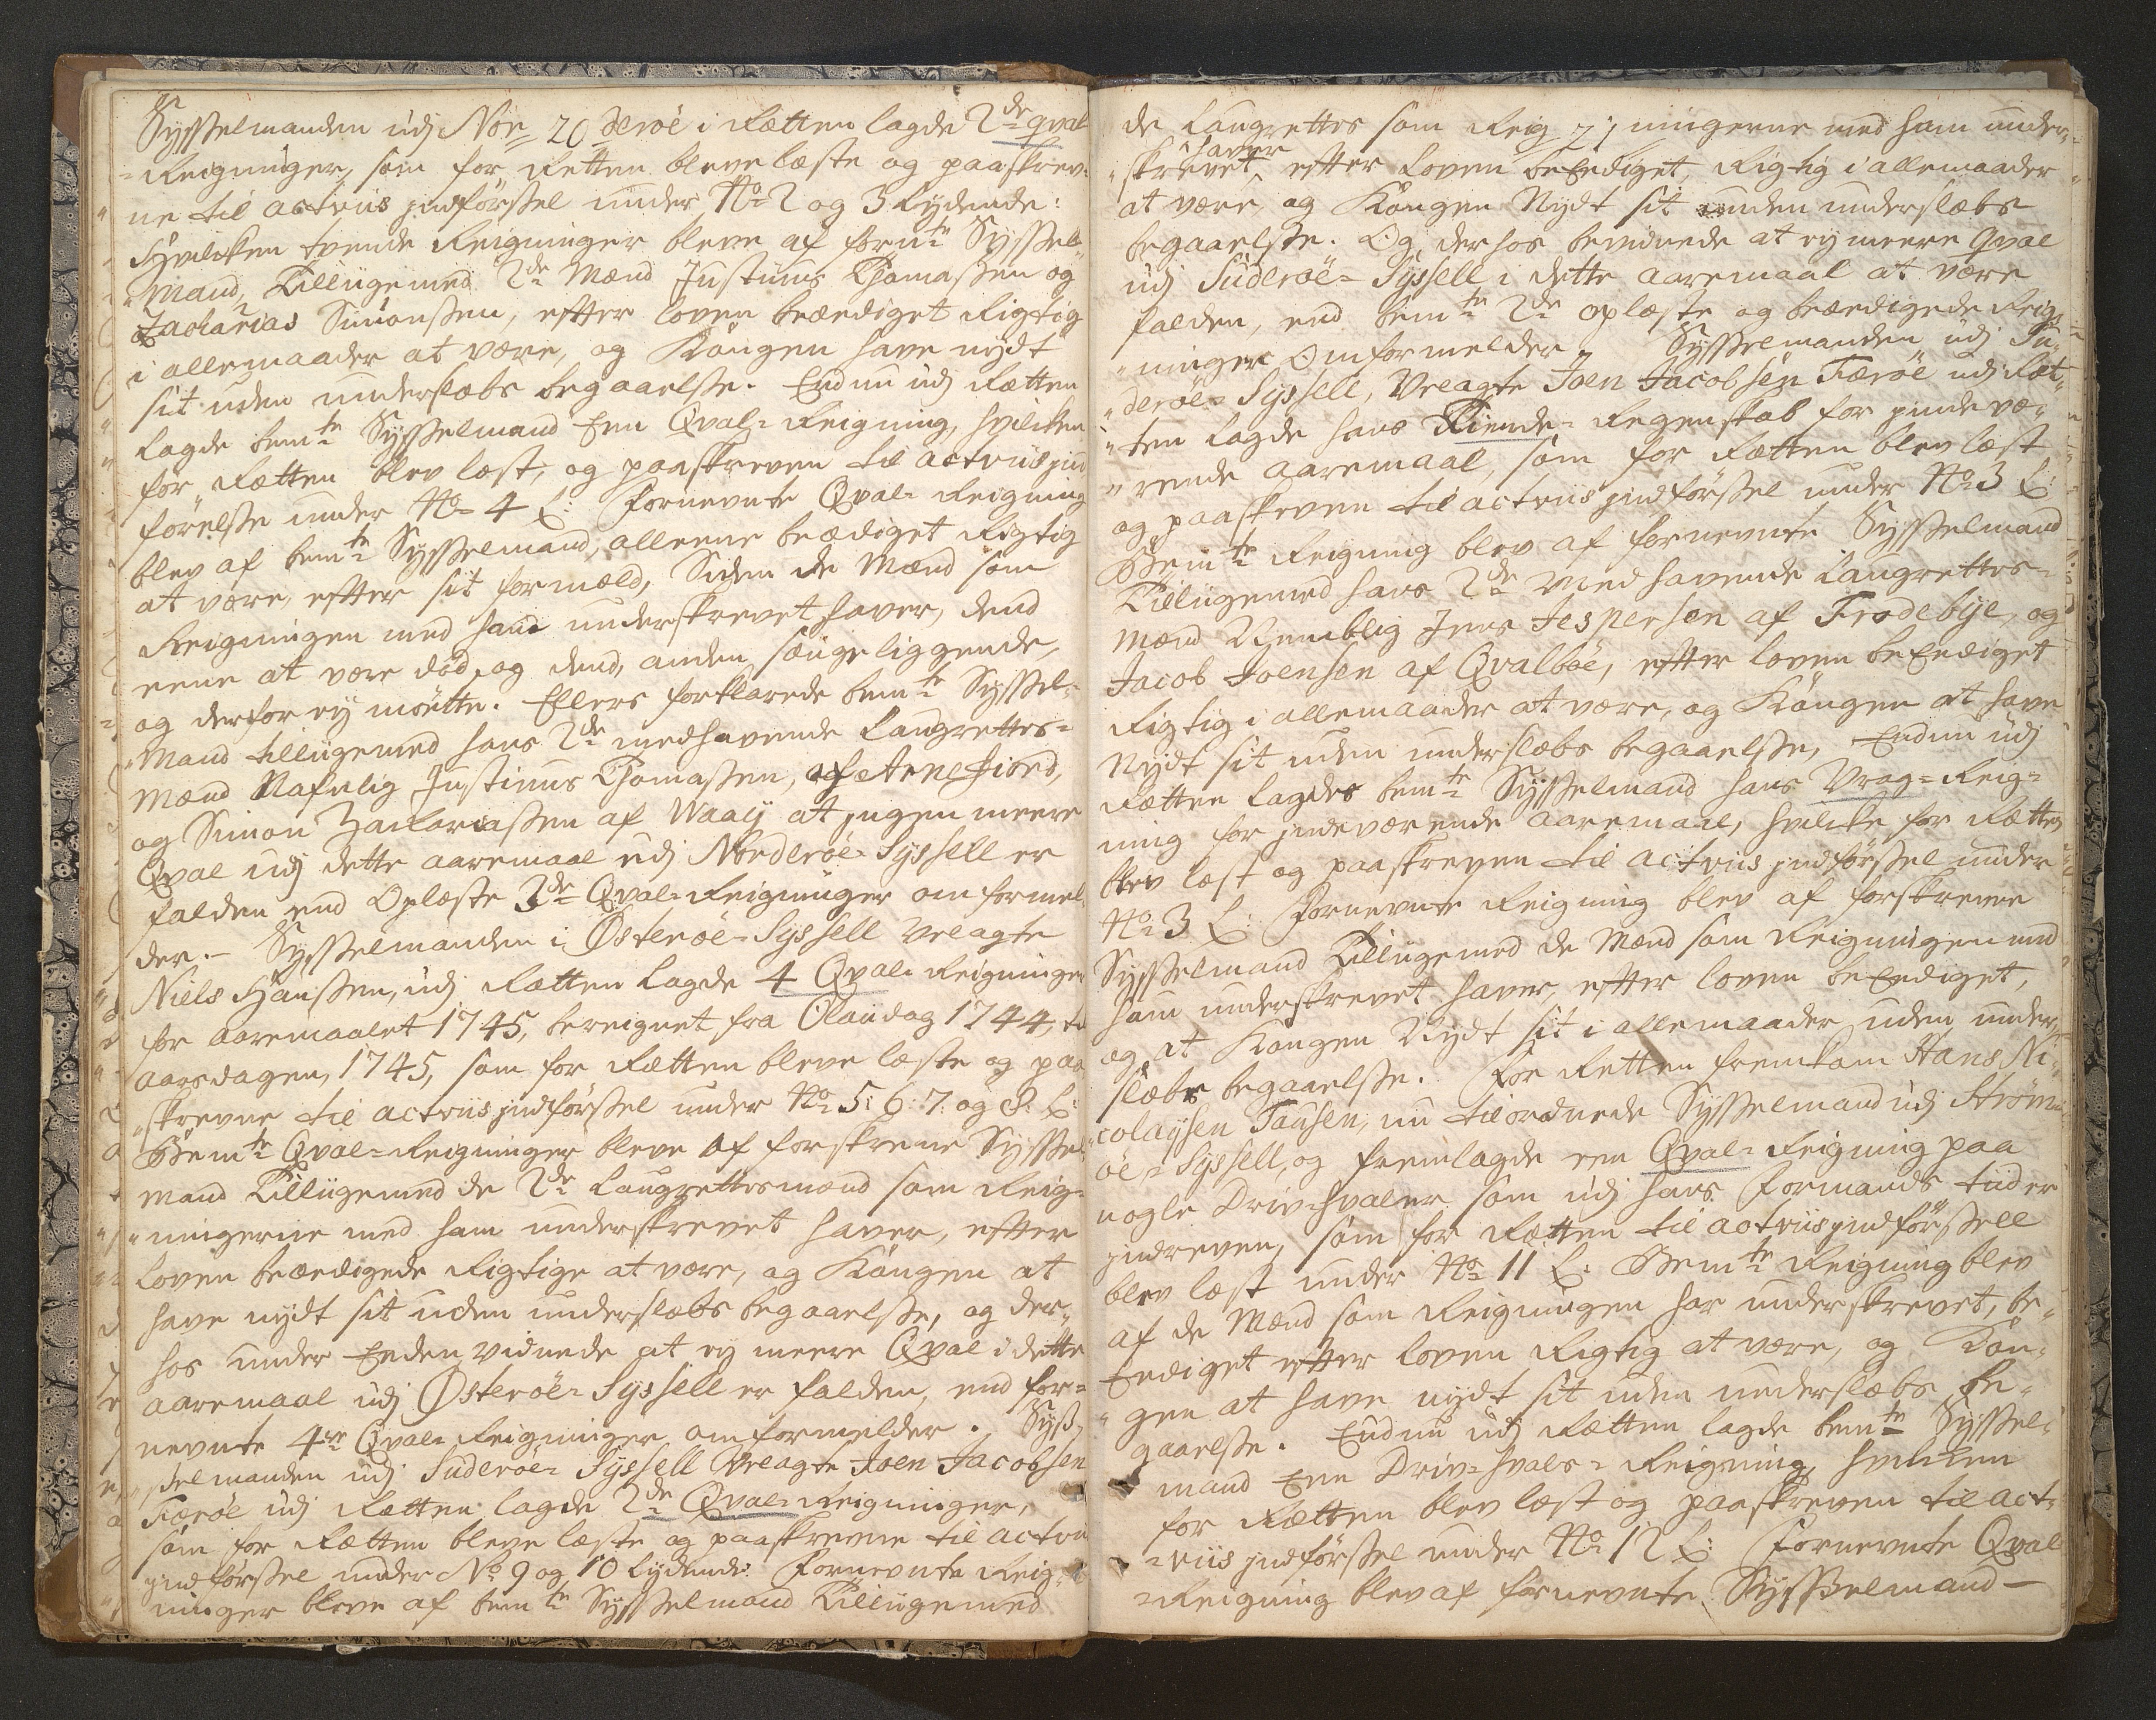 Sysselmanden udj Nor= 20 deröe i Rætten lagde 2de qval
=Reigninger, som for Retten bleve læste og paaskrev=
ne til actviis jndförssel under No 2 og 3 lydende:
Hvilcken tvende Reigninger bleve af fornte Syssel=
Mand, Tilligemed 2de Mænd Justinus Thomassen og
Zacharias Simonssen, efter loven beædiget Rigtig
i allemaader at være, og Kongen have nydt
sit uden underslæbs begaaelsse. Endnu udj Rætten
lagde bemte Sysselmand Een Qval=Reigning, hvilcken
for Rætten blev læst, og paaskreven til actviis jnd
förelsse under No 4 L: Fornevnte Qval=Reigning
blev af bemte Sysselmand, alleene beædiget Rigtig
at være, efter sit formæld, Siden de Mænd som
Reigningen med ham underskrevet haver, dend
eene at være död, og dend anden sængeliggende,
og derfor ey mötte. Ellers forklarede bemte Syssel=
Mand tilligemed hans 2de medhavende Laugrettes=
Mænd Nafnlig Justinus Thomassen, af Arnefiord,
og Simon Zachariassen af Waay at jngen meere
Qval udj dette aaremaal udj Norderöe=Syssell er
falden end Oplæste 3de Qval=Reigninger omformel
der.— Sysselmanden i Österöe=Syssell Vreagte
Niels Hanssen, udj Rætten lagde 4 Qval=Reigninger
for aaremaalet 1745, bereignet fra Olaudag 1744, til
aarsdagen, 1745, som for Rætten bleve læste og paa
skrevne til actviis jndförssel under No 5: 6: 7: og 8: L:
Bemte Qval=Reigninger bleve af forskrevne Syssel
mand Tilligemed de 2de Laugrettesmænd som Reig=
ningerne med ham underskrevet haver, efter
Loven beædigede Rigtige at være, og Kongen at
have nydt sit uden underslæbs begaaelsse, og der=
hos under Eeden vidnede at ey meere Qval i dette
aaremaal udj Österöe=Syssell er falden, end for=
nevnte 4re Qval=Reigninger omformelder. Syss=
selmanden udj Suderöe=Syssell Vreagte Joen Jacobsen
Færöe udj Rætten lagde 2de Qval=Reigninger,
som for Rætten bleve læste og paaskrevne til actvi
jndförssel under No 9 og 10 lydende: Fornevnte Reig=
ninger bleve af bemte Sysselmand Tilligemed
de Laugrettes som Reig 21 ningerne med ham under=
skrevet haver efter Loven beEediget, Rigtig i allemaader
at være, og Kongen Nydt sit uden underslæbs
begaaelsse. Og derhos bevidnede at ey meere qval
udj Suderöe=Syssell i dette aaremaal at være
falden, end bemte 2de oplæste og beædigede Reig=
ninger Omformelder. Sysselmanden udj Su=
deröe=Syssell, Vreagte Joen Jacobsen Færöe udj Ræt=
ten lagde hans Tiende=Regenskab for jndevæ=
rende aaremaal, som for Rætten blev læst
og paaskreven til actviis jndförssel under No 3 L:
Bemte Reigning blev af fornevnte Sysselmand
Tilligemed hans 2de Medhavende Laugrettes=
Mænd Nemblig Jens Jespersen af Frodebye, og
Jacob Joensen af Qvalböe, efter loven beEediget
Rigtig i allemaader at være, og Kongen at have
Nydt sit uden underslæbs begaaelsse, Endnu udj
Rætten lagdes bemte Sysselmand hans Vrag=Reig=
ning for jndeværende aaremaal, hvilcke for Rætten
blev læst og paaskreven til actviis jndförssel under
No 3 L: Fornevnte Reigning blev af forskrevne
Sysselmand Tilligemed de Mænd som Reigningen med
ham underskrevet haver, efter loven beEediget,
og at Kongen Nydt sit i allemaader uden under=
slæbs begaaelsse. For Retten fremkom Hans Ni=
colaysen Tausen, nu tilordnede Sysselmand udj Ström=
öe=Syssell, og fremlagde een Qval=Reigning paa
nogle Driv=hvaler som udj hans Formands tiid er
jndreven, som for Rætten til actviis jndförssell
blev læst under No 11 L: Bemte Reigning blev
af de Mænd som Reigningen har underskrevet, be=
Eediget efter loven Rigtig at være, og Kon=
gen at have nydt sit uden underslæbs be=
gaaelsse. Endnu udj Rætten lagde bemte Syssel=
mand Een Driv=hvals=Reigning, hvilcken
for Rætten blev læst og paaskreven til act=
viis jndförssel under No 12 L: Fornevnte Qval
=Reigning blev af fornevnte Sysselmand—